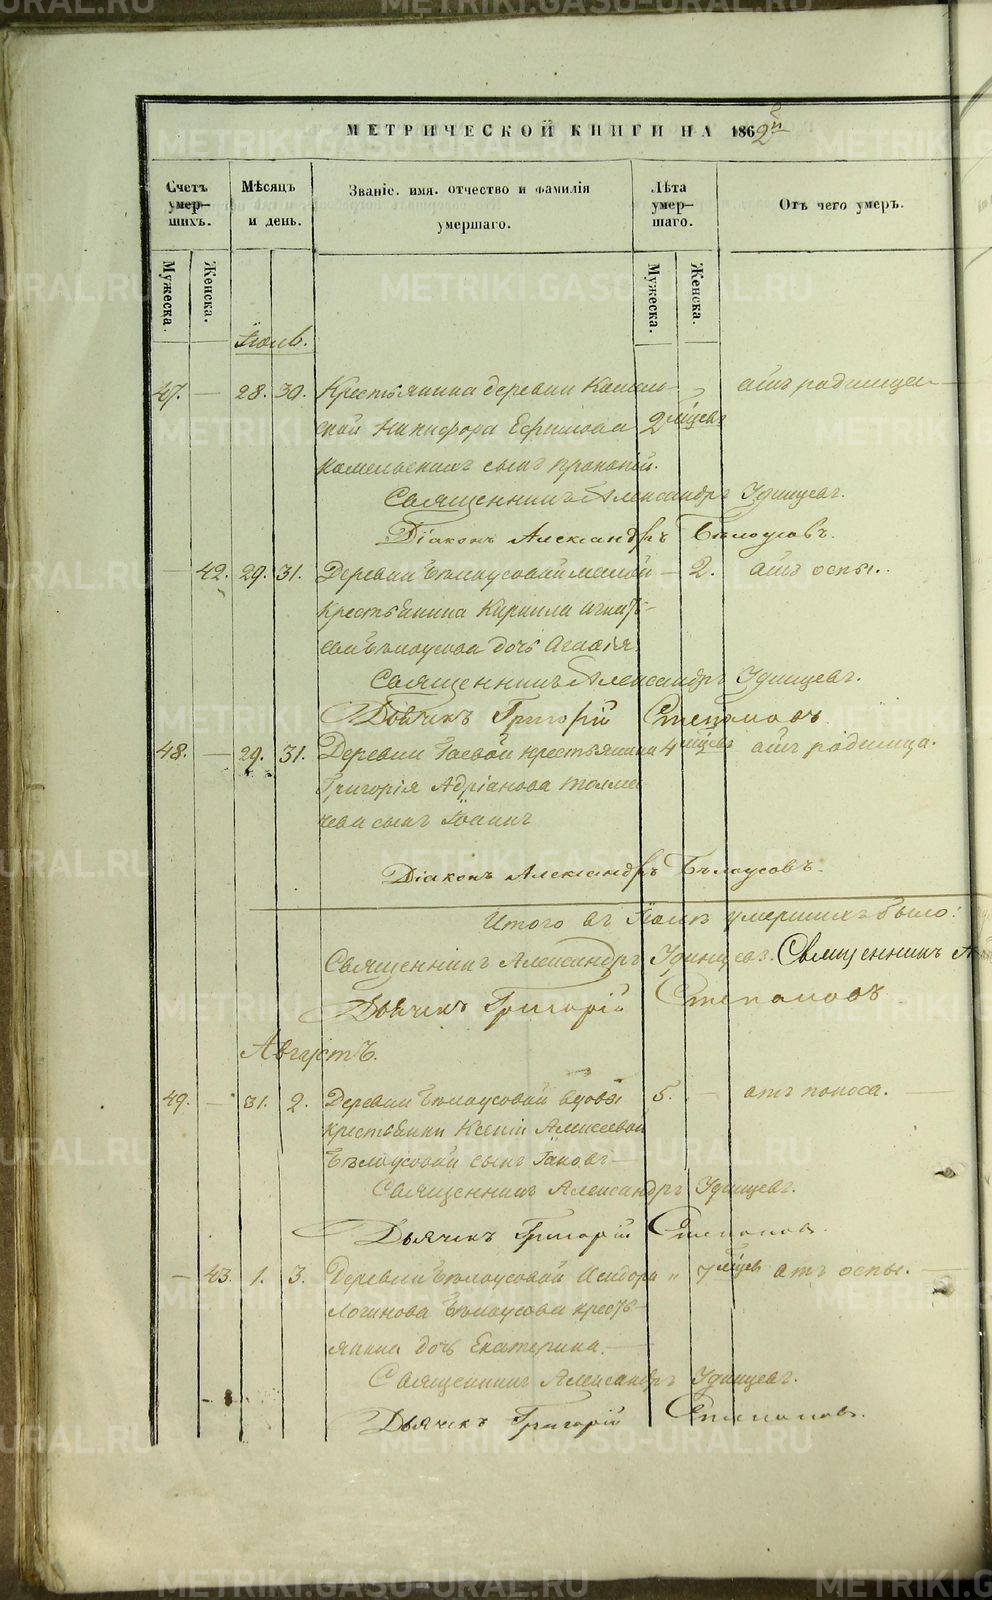 МЕТРИЧЕСКОЙ КНИГИ НА 1862й
Счетъ умер-шихъ.
Мѣсяцъ и день.
Званіе. имя. отчество и фамилія умершаго.
Лѣта умер-шаго.
Отъ чего умеръ.
Мужеска.
Женска.
Мужеска.
Женска.
Іюль.
47. — 28. 30. Крестьянина деревни 2 мѣсец. отъ родимца —
Никифора Ефимова
сынъ Прокопій.
Священникъ Александръ Удинцевъ.
Діаконъ Александръ Бѣлоусовъ.
— 42. 29. 31. Деревни Бѣлоусовой малой — 2. отъ оспы.
крестьянина Кирилла Игнать-
ева Бѣлоусова дочь Агафія.
Священникъ Александръ Удинцевъ.
Дьячекъ Григорій Степановъ.
48. — 29. 31. Деревни крестьянина 4 мѣсец. отъ родимца.
Григорія Адріанова Толма-
чева сынъ Іоаннъ
Діаконъ Александръ Бѣлоусовъ.
Итого въ Іюлѣ умершихъ было:
Священникъ Александръ Удинцевъ. Священникъ
Дьячекъ Григорій Степановъ
Августъ.
49. — 31. 2. Деревни Бѣлоусовой вдовы 5. — отъ поноса. —
крестьянки Ксеніи Алексеевой
Бѣлоусовой сынъ Іаковъ —
Священникъ Александръ Удинцевъ.
Дьячекъ Григорій Степановъ.
— 43. 1. 3. Деревни Бѣлоусовой Исидора " 7 мѣсец. отъ оспы. —
Логинова Бѣлоусова кресть-
янина дочь Екатерина. —
Священникъ Александръ Удинцевъ.
Дьячекъ Григорій Степановъ.
METRIKI.GASO-URAL.RU